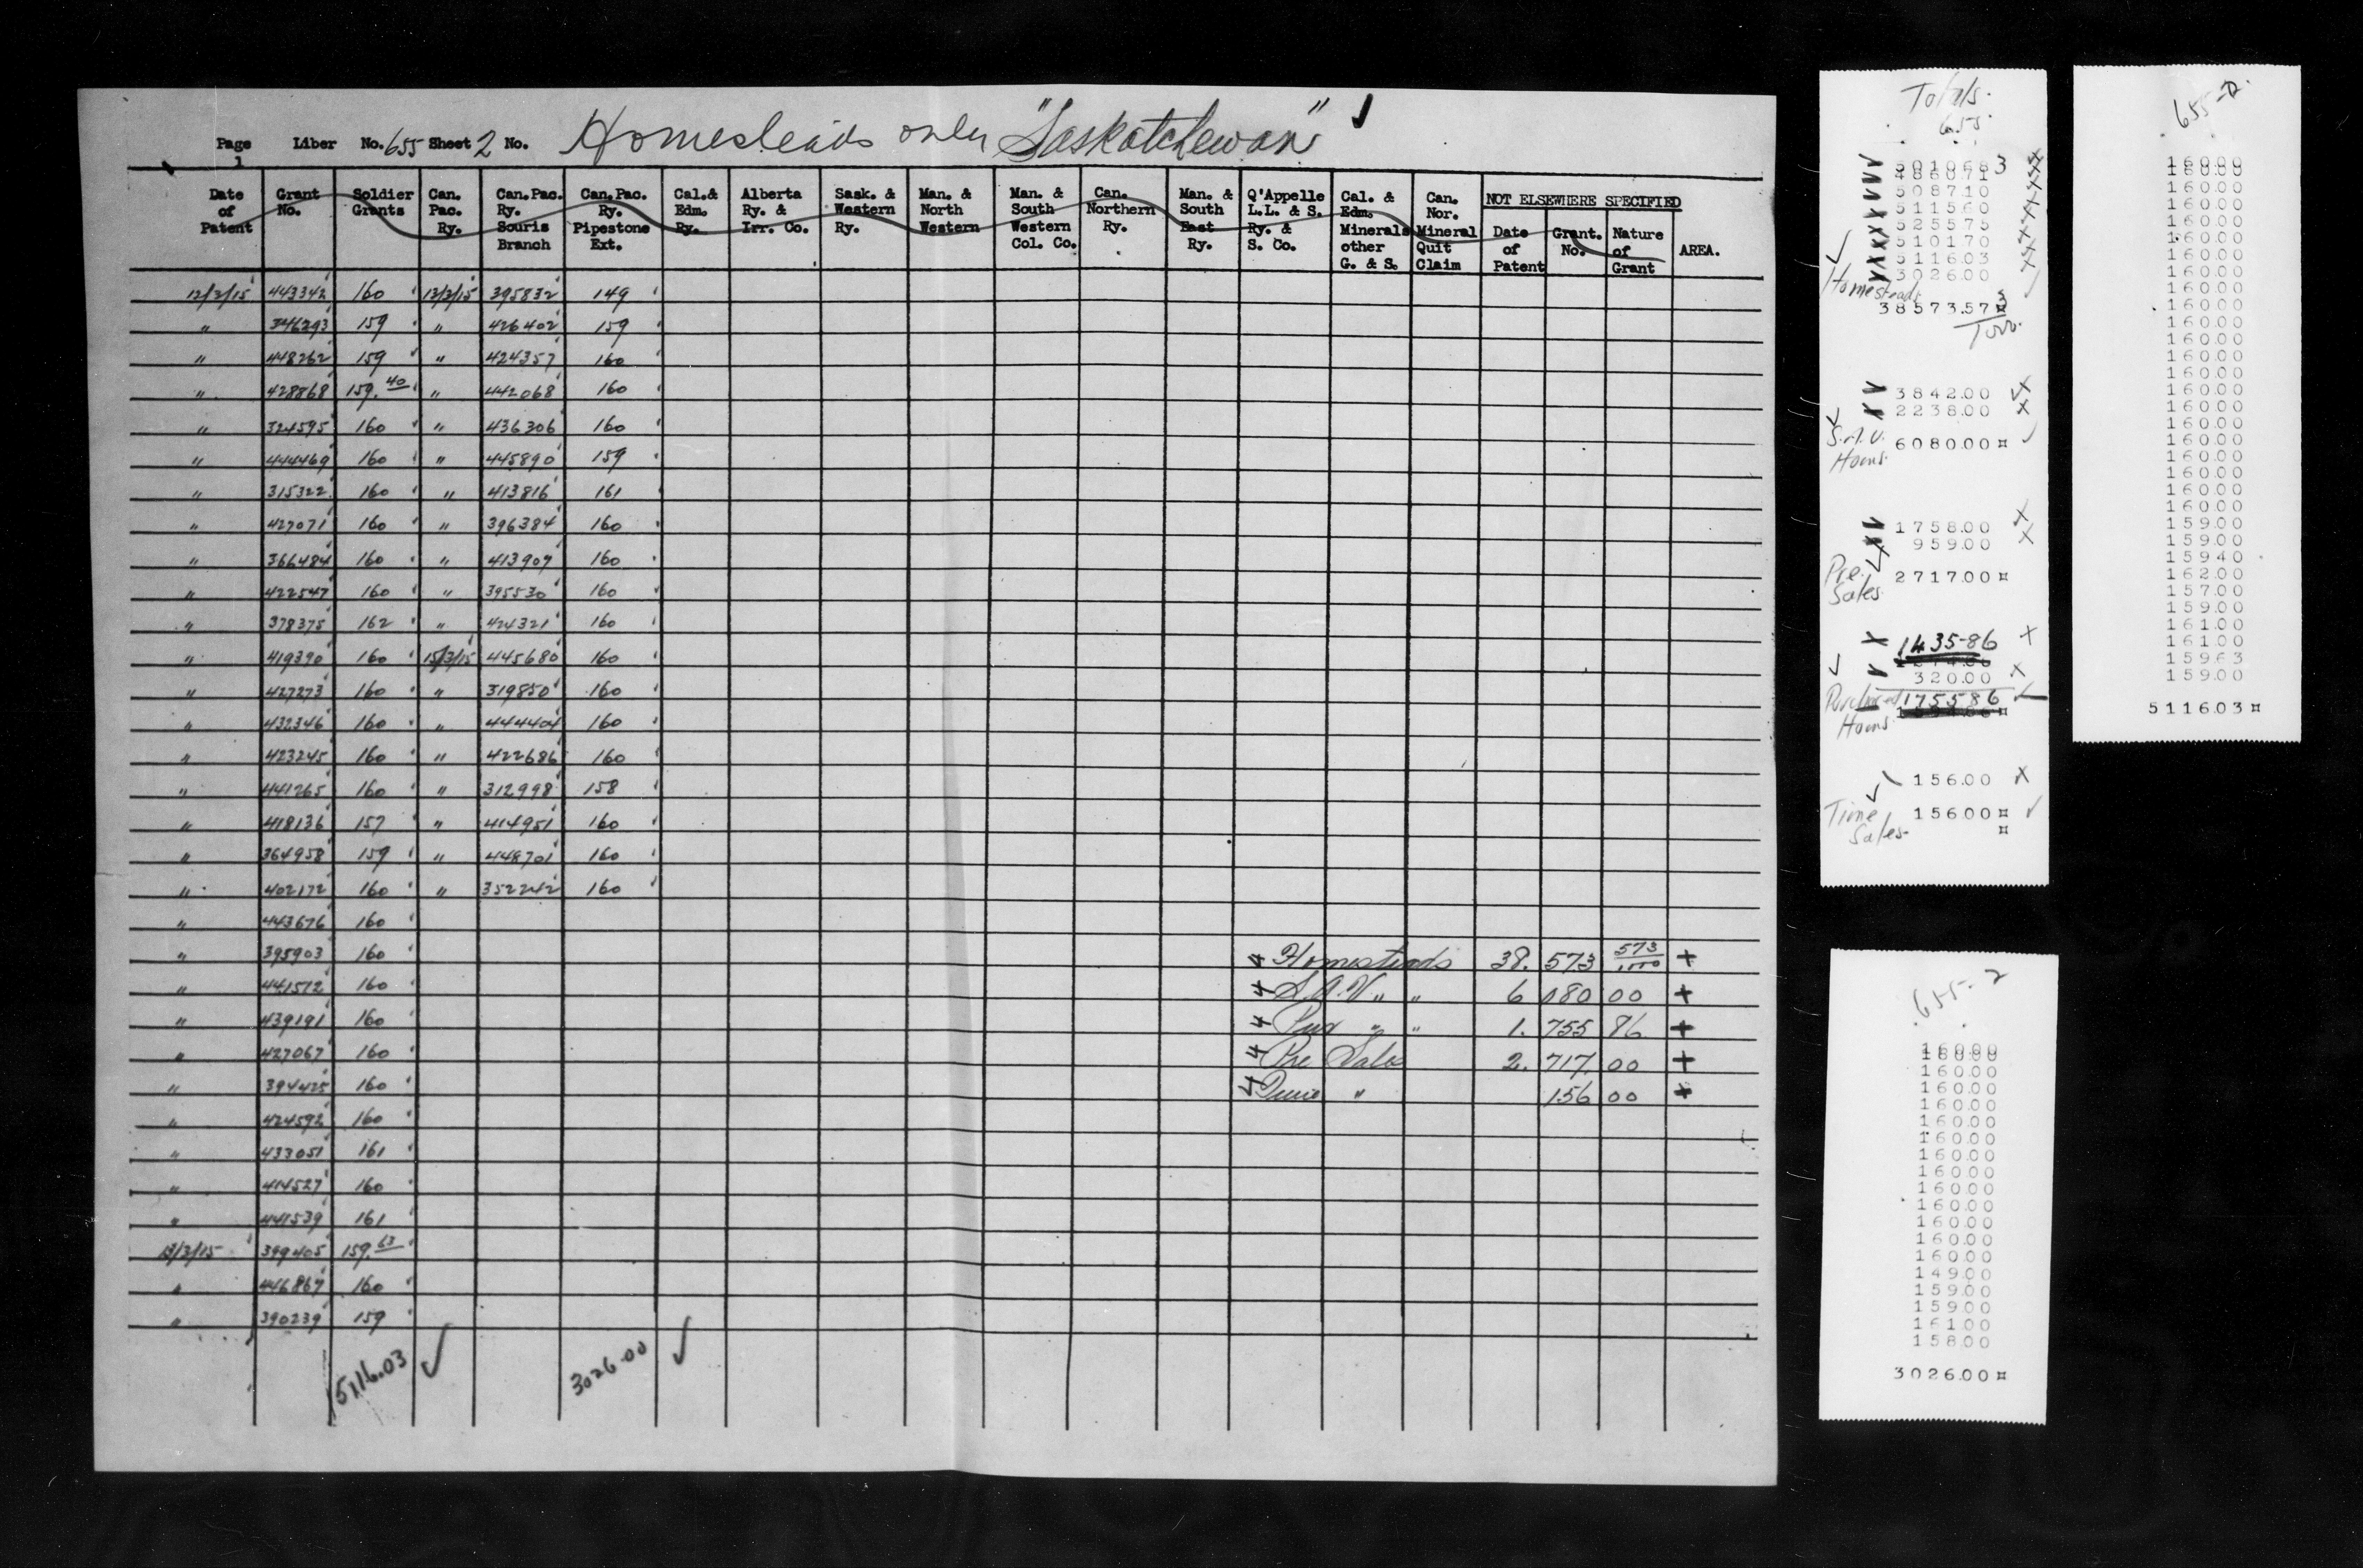 Page 1 Liber No. 655 Sheet 2 No. Homesteads only "Saskatchewan"
Date of Patent | Grant No. | Soldier Grants | Can. Pac. Ry. | Can.Pac. Ry. Souris Branch | Can.Pac. Ry. Pipestone Ext. | Cal.& Edm. Ry. | Alberta Ry. & Irr. Co. | Sask. & Western Ry. | Man. & North Western | Man. & South Western Col. Co. | Can. Northern Ry. | Man. & South East Ry. | Q'Appelle L.L. & S. Ry. & S. Co. | Cal. & Edm. Minerals other G. & S. | Can. Nor. Mineral Quit Claim | NOT ELSEWHERE SPECIFIED | Date of Patent | Grant. No. | Nature of Grant | AREA.
12/3/15 443342 160 12/3/15 395832 149
" 346293 159 " 426402 159
" 448262 159 " 424357 160
" 428868 159.40 " 442068 160
" 324595 160 " 436306 160
" 444469 160 " 445890 159
" 315322 160 " 413816 161
" 427071 160 " 396384 160
" 366484 160 " 413907 160
" 422547 160 " 395530 160
" 378375 162 " 424321 160
" 419390 160 15/3/15 445680 160
" 427273 160 " 319850 160
" 432346 160 " 444404 160
" 423245 160 " 422686 160
" 441265 160 " 312998 158
" 418136 157 " 414951 160
" 364958 159 " 448701 160
" 402172 160 " 352242 160
" 443676 160
" 395903 160 Homesteads 38. 573 573/1000 +
" 441512 160 S.A.V. " " 6 080 00 +
" 439191 160 Pur " " 1. 755 86 +
" 427067 160 Pre Sales 2. 717. 00 +
" 394425 160 Time " 156 00 +
" 424592 160
" 433051 161
" 414527 160
" 441539 161
13/3/15 399405 159.63
" 446867 160
" 390239 159
5116.03 ✓ 3026.00 ✓
Totals.
655.
501068 3
486071
508710
511560
525575
510170
511603
302600
Homesteads
38573.57 3
3842.00
2238.00
S.A.V. Homs. 6080.00 ¤
1758.00
959.00
Pre. Sales 2717.00 ¤
1435-86
320.00
Purchased Homs. 1755 86
156.00
Time Sales 156.00 ¤
¤
655-2
160.00
160.00
160.00
160.00
160.00
160.00
160.00
160.00
160.00
160.00
160.00
160.00
160.00
160.00
160.00
160.00
160.00
160.00
160.00
160.00
160.00
160.00
159.00
159.00
159.40
162.00
157.00
159.00
161.00
161.00
159.63
159.00
5116.03 ¤
655-2
160.00
160.00
160.00
160.00
160.00
160.00
160.00
160.00
160.00
160.00
160.00
160.00
160.00
160.00
149.00
159.00
159.00
161.00
158.00
3026.00 ¤